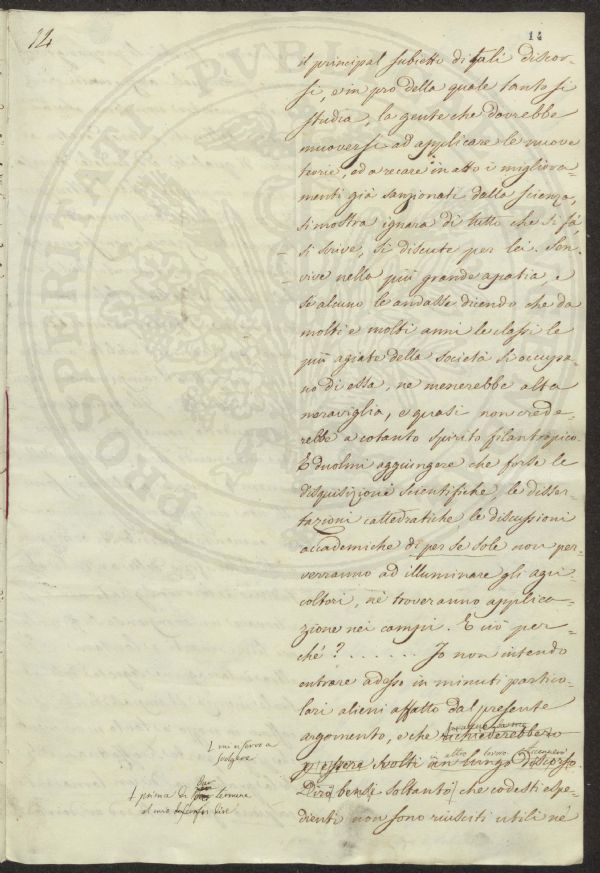 14
14
il principal subietto di tali discor-
si, e in pro della quale tanto si
studia, la gente che dovrebbe
muoversi ad applicare le nuove
teorie, ed a recare in atto i migliora-
menti già sanzionati dalla scienza,
si mostra ignara di tutto che si fà,
si scrive, si discute per lei. Sen
vive nella più grande apatia, e
se alcuno le andasse dicendo che da
molti e molti anni le classi le
più agiate della società si occupa-
no di essa, ne menerebbe alta
maraviglia, e quasi non crede-
rebbe a cotanto spirito filantropico.
E duolmi aggiungere che forse le
disquisizioni scientifiche, le disser-
tazioni cattedratiche, le discussioni
accademiche di per se sole non per-
verranno ad illuminare gli agri-
coltori, nè troveranno applica-
zione nei campi. E ciò per-
chè? ...... Io non intendo
entrare adesso in minuti partico-
lari alieni affatto dal presente
argomento, e che richiederebbero
altro
essere svolti in lungo discorso.
Dirò bensì soltanto che codesti espe-
dienti non sono riusciti utili nè
mi riservo a
svolgere
prima di termine
al mio dire
PROSPERITATI PVBLICAE